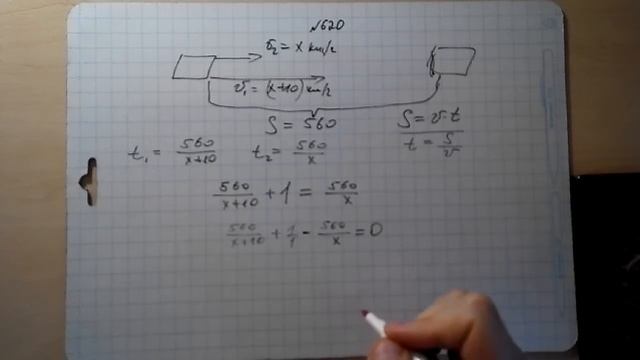 №620
v₂ = x км/г
v₁ = (x+10) км/г
S = 560
S = v·t
t = S/v
t₁ = 560/(x+10) t₂ = 560/x
560/(x+10) + 1 = 560/x
560/(x+10) + 1/1 - 560/x = 0